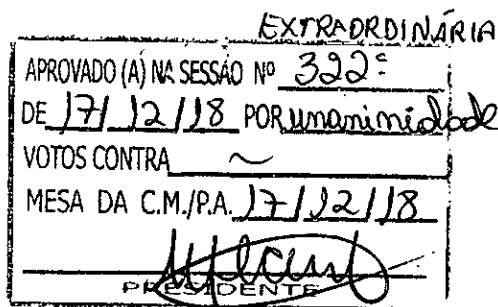 EXTRAORDINÁRIA
APROVADO (A) NA SESSÃO Nº 322ª
DE 17/12/18 POR unanimidade
VOTOS CONTRA ~
MESA DA C.M./P.A. 17/12/18
PRESIDENTE